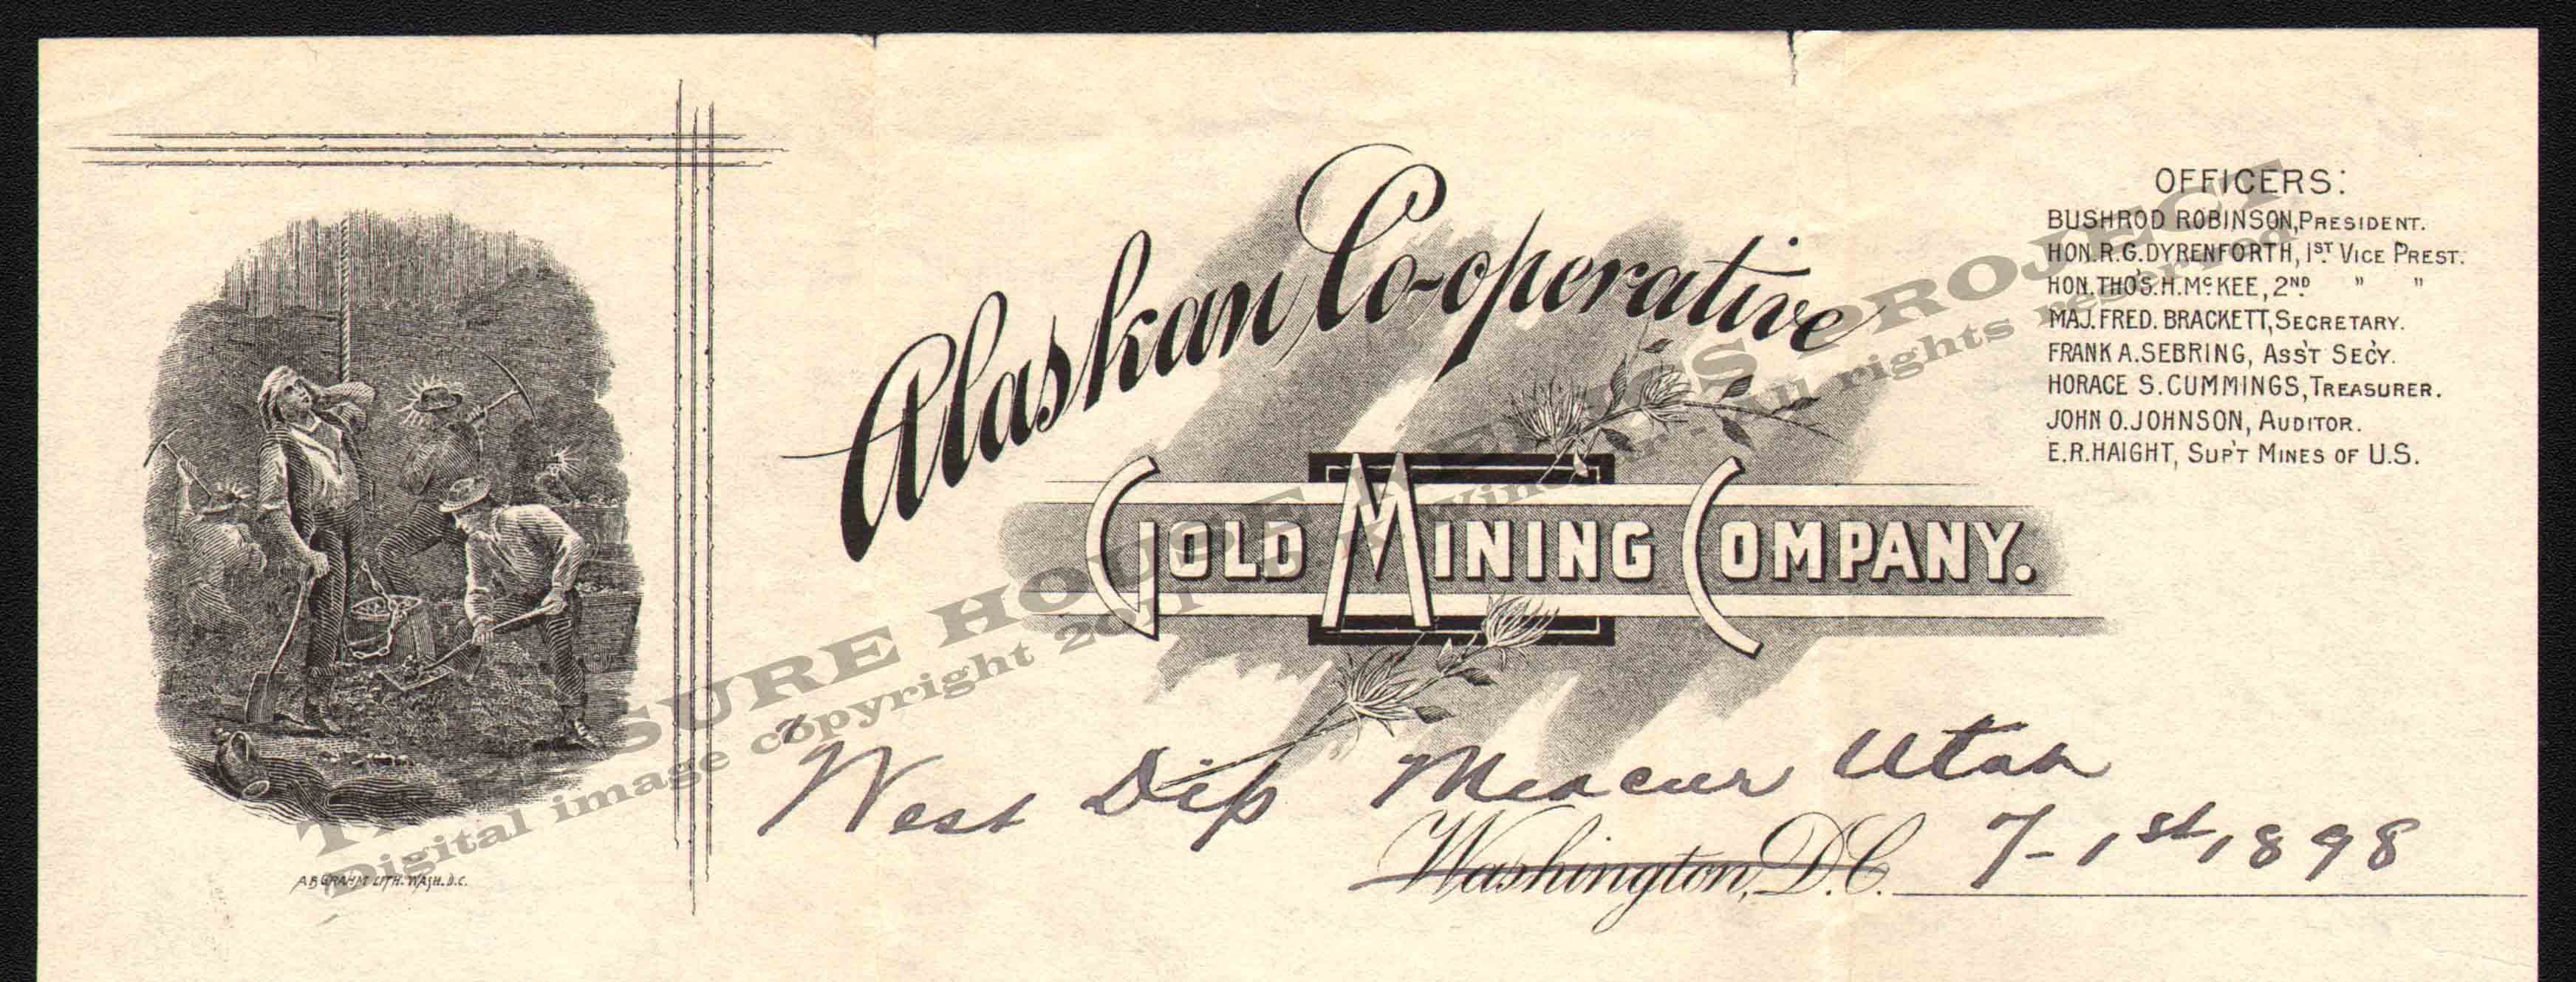 Alaskan Co-operative
GOLD MINING COMPANY.
OFFICERS:
BUSHROD ROBINSON, PRESIDENT.
HON. R. G. DYRENFORTH, 1ST VICE PREST.
HON. THO'S. H. McKEE, 2ND " "
MAJ. FRED. BRACKETT, SECRETARY.
FRANK A. SEBRING, ASS'T SEC'Y.
HORACE S. CUMMINGS, TREASURER.
JOHN O. JOHNSON, AUDITOR.
E. R. HAIGHT, SUP'T MINES OF U.S.
West Dip Mercur Utah
Washington, D.C. 7-1st, 1898
A B GRAHAM LITH. WASH. D.C.
SURE HOUSE PROJECT
Digital image copyright All rights